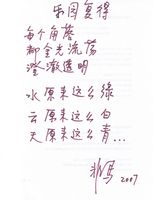 乐园复得
每个角落
都金光流荡
澄澈透明
水原来这么绿
云原来这么白
天原来这么青...
非马
2007